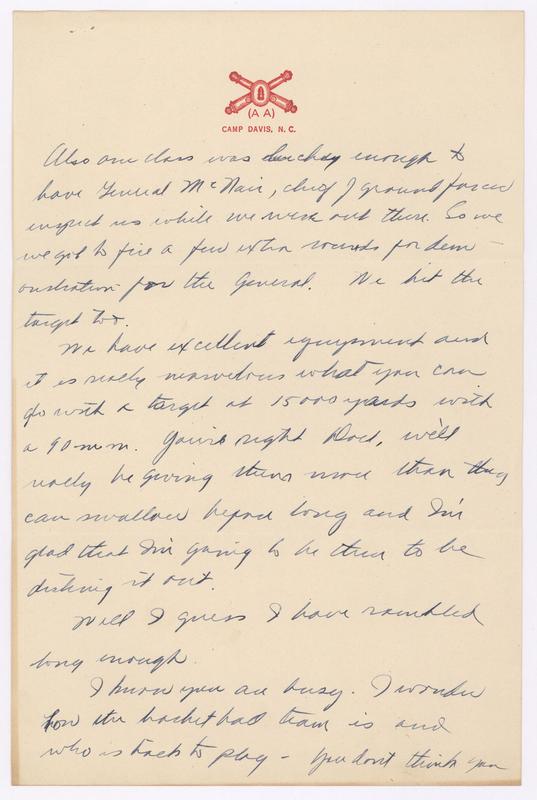 (A A)
CAMP DAVIS, N. C.
Also our class was lucky enough to
have General McNair, chief of ground forces
inspect us while we were out there. So we
we got to fire a few extra rounds for dem-
onstration for the General. We hit the
target too.
We have excellent equipment and
it is really marvelous what you can
do with a target at 15000 yards with
a 90 m.m. You're right Doc, we'll
really be giving them more than they
can swallow before long and I'm
glad that I'm going to be there to be
dishing it out.
Well I guess I have rambled
long enough.
I know you are busy. I wonder
how the basket ball team is and
who is back to play - You don't think you